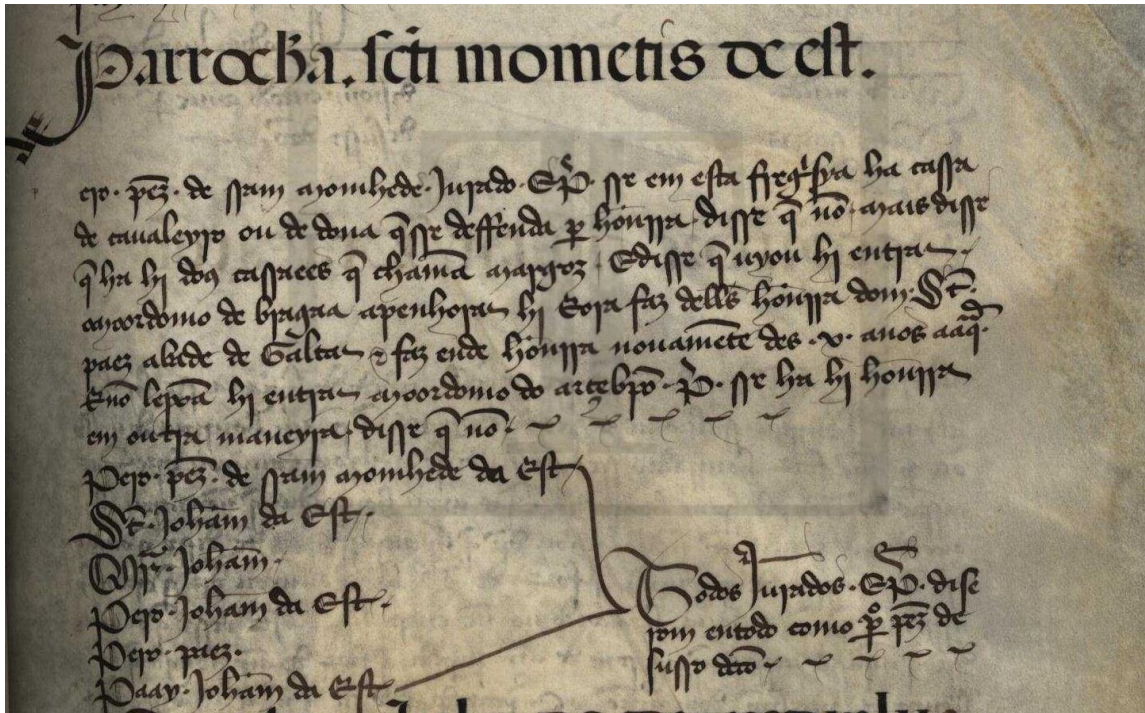 Parrochia. scti mometis de est.
ero. pez. de ssam momhede. Jurado. E p. sse em esta fregsya ha cassa
de cavaleyro ou de dona q̃ sse deffenda p honrra. disse q̃ nõ. mais disse
q̃ ha hi dous cassaees q̃ chamã margoz. E disse q̃ vyou hi entrar
moordomo de bragaa apenhorar hi E ora faz dells honrra dom.
paez abade de Galtar & faz ende honrra novamẽte des .v. anos aaq̃
E nõ leyxã hi entrar moordomo do arcebpõ. p. sse ha hi honrra
em outra maneyra. disse q̃ nõ.
Pero. pez. de ssam momhede da Est
Johãm da Est.
Johãm.
Pero. Johãm da Est.
Pero. paez.
Paay. Johãm da Est
Todos Jurados. E p. dise
rom entodo como po pez de
susso dcõ.